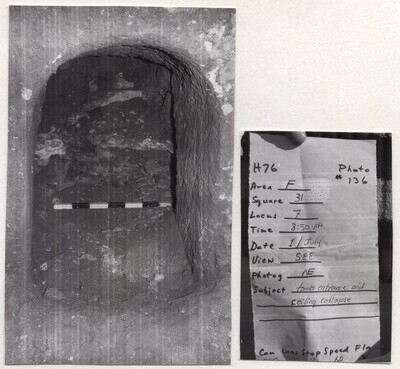 H76 Photo
# 136
Area F
Square 31
Locus 7
Time 8:50 AM
Date 1 / July
View SEE
Photog NE
Subject tomb entrance and
ceiling collapse
Cam Lens Stop Speed